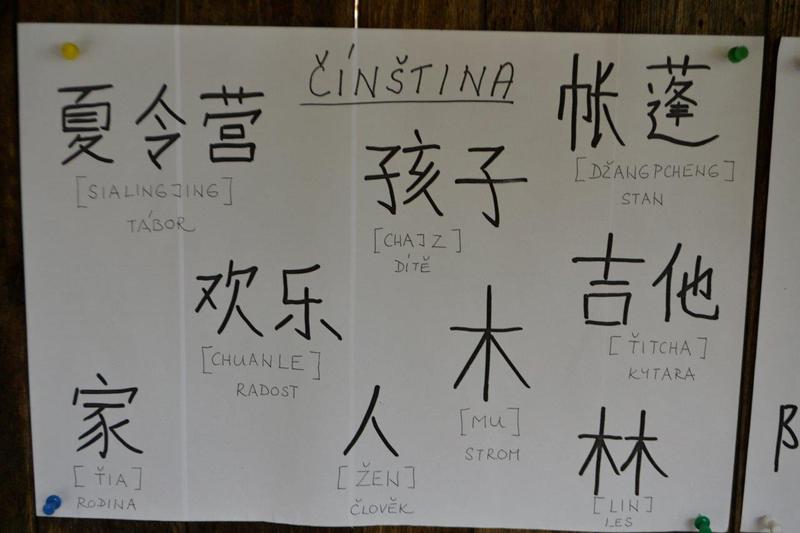 ČÍNŠTINA
夏令营
[SIALINGJING]
TÁBOR
孩子
[CHAJZ]
DÍTĚ
帐蓬
[DŽANGPCHENG]
STAN
欢乐
[CHUANLE]
RADOST
木
[MU]
STROM
吉他
[ŤITCHA]
KYTARA
家
[ŤIA]
RODINA
人
[ŽEN]
ČLOVĚK
林
[LIN]
LES